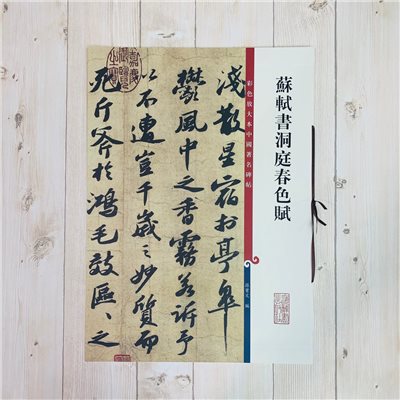 蘇軾書洞庭春色賦
彩色放大本中國著名碑帖
孫寶文 編
淺散星宿於亭皋
鬱風中之香霧若訴予
以不遭豈千歲之妙質而
死斤斧於鴻毛效區々之